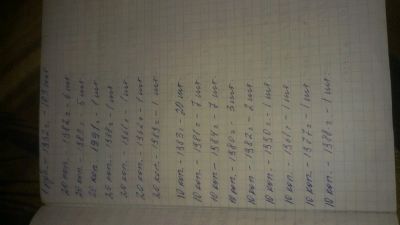 1 руб. - 1992 г. - 183 шт
20 коп. - 1982 г. - 6 шт.
20 коп - 1989 г. - 5 шт.
20 коп 1991. - 1 шт.
20 коп. 1988 г. - 1 шт.
20 коп. - 1961 г. - 1 шт.
20 коп. - г. - 1 шт.
20 коп. - 1983 г. - 1 шт.
10 коп. - 1983 г. - 20 шт.
10 коп. - 1981 г. - 7 шт.
10 коп - 1984 г. - 7 шт.
10 коп. - 1980 г. - 3 шт.
10 коп. - 1982 г. - 2 шт.
10 коп. - 1990 г. - 1 шт.
10 коп. - 1961 г. - 1 шт.
10 коп. - 1987 г. - 1 шт.
10 коп. - 1988 г. - 1 шт.